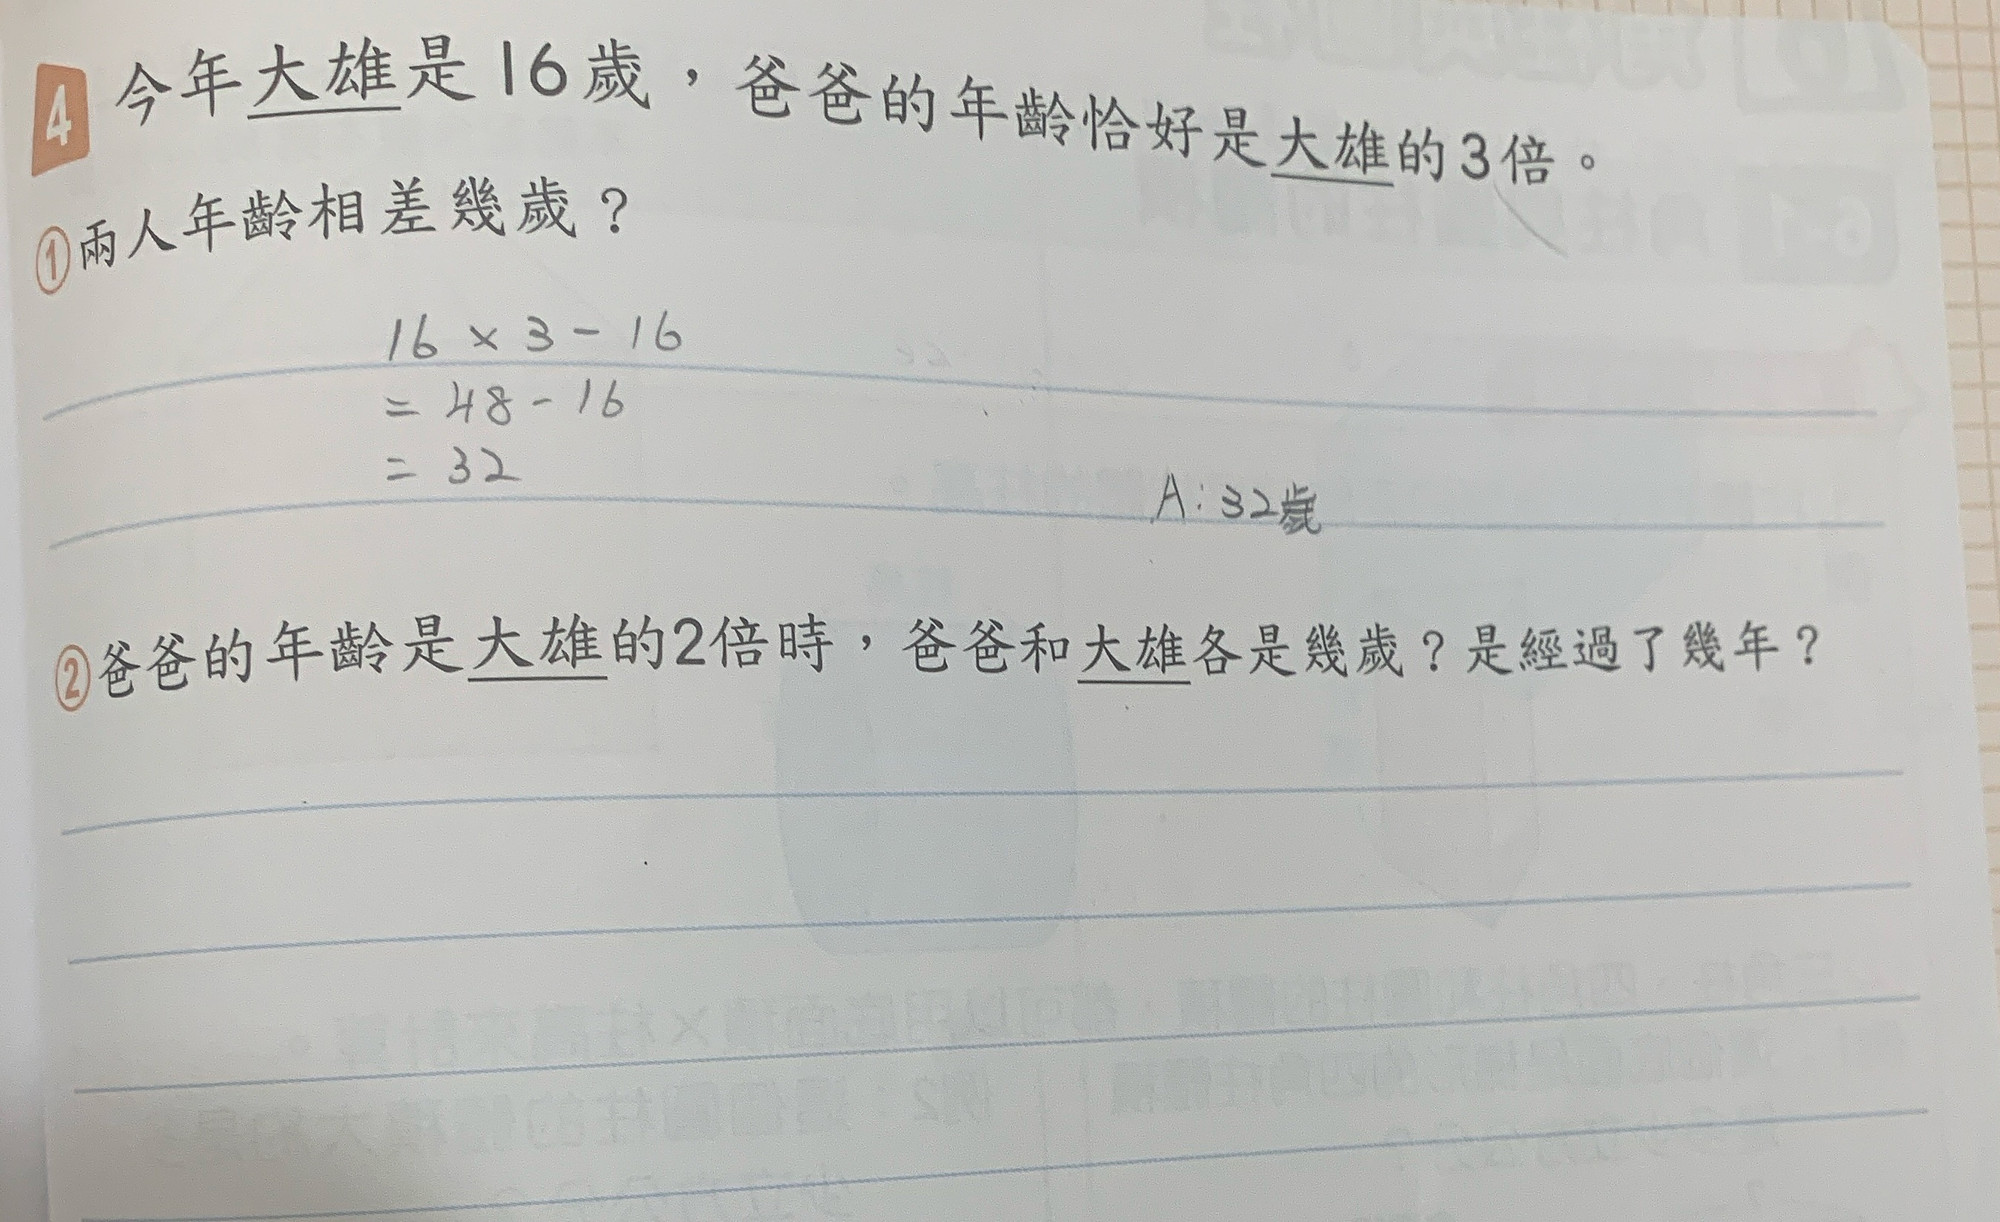 4 今年大雄是16歲，爸爸的年齡恰好是大雄的3倍。
①兩人年齡相差幾歲？
16 × 3 - 16
= 48 - 16
= 32
A: 32歲
②爸爸的年齡是大雄的2倍時，爸爸和大雄各是幾歲？是經過了幾年？